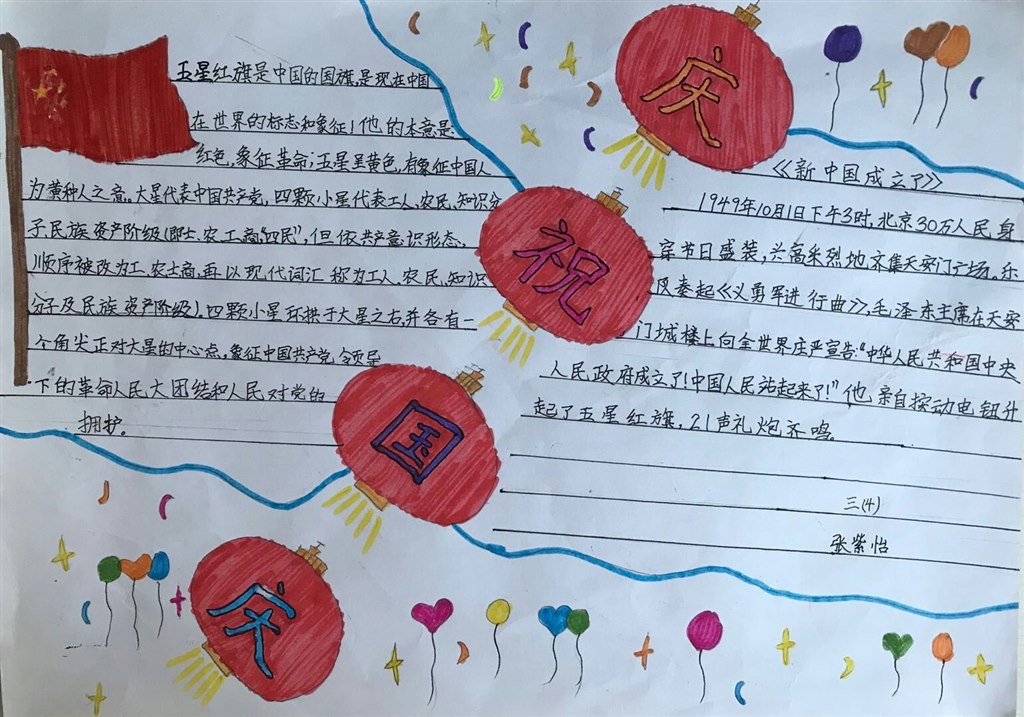 五星红旗是中国的国旗,是现在中国
在世界的标志和象征!他的本意是:
红色,象征革命;五星呈黄色,有象征中国人
为黄种人之意。大星代表中国共产党,四颗小星代表工人、农民、知识分
子民族资产阶级(即士、农、工、商,"四民",但依共产意识形态,
顺序被改为工、农、士、商,再以现代词汇称为工人、农民、知识
分子及民族资产阶级)。四颗小星环拱于大星之右,并各有一
个角尖正对大星的中心点,象征中国共产党领导
下的革命人民大团结和人民对党的
拥护。
庆
祝
国
庆
《新中国成立了》
1949年10月1日下午3时,北京30万人民,身
穿节日盛装,兴高采烈地齐集天安门广场。乐
队奏起《义勇军进行曲》,毛泽东主席在天安
门城楼上向全世界庄严宣告:"中华人民共和国中央
人民政府成立了!中国人民站起来了!"他,亲自按动电钮升
起了五星红旗,21声礼炮齐鸣。
三(4)
张紫怡